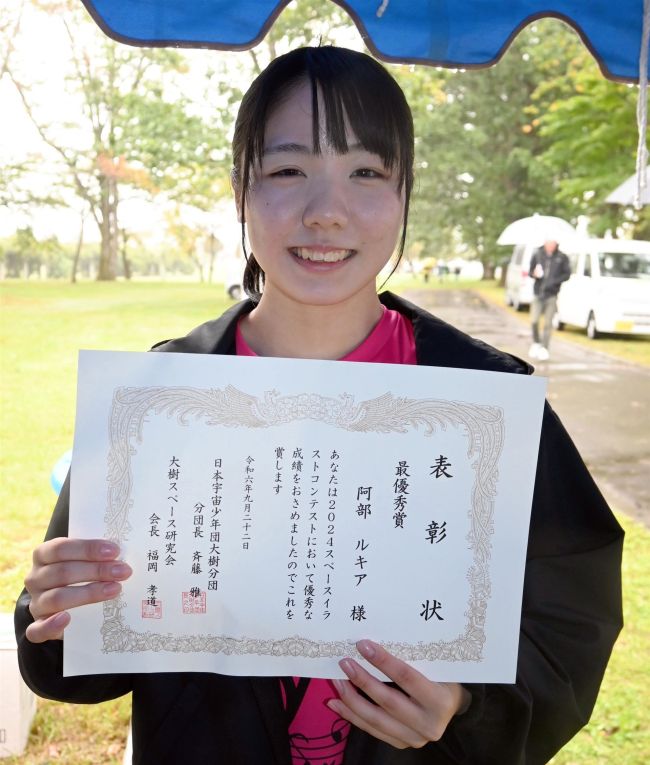 表彰状
最優秀賞
阿部 ルキア 様
あなたは2024スペースイラ
ストコンテストにおいて優秀な
成績をおさめましたのでこれを
賞します
令和六年九月二十二日
日本宇宙少年団大樹分団
分団長 斉藤 雅
大樹スペース研究会
会長 福岡 孝道